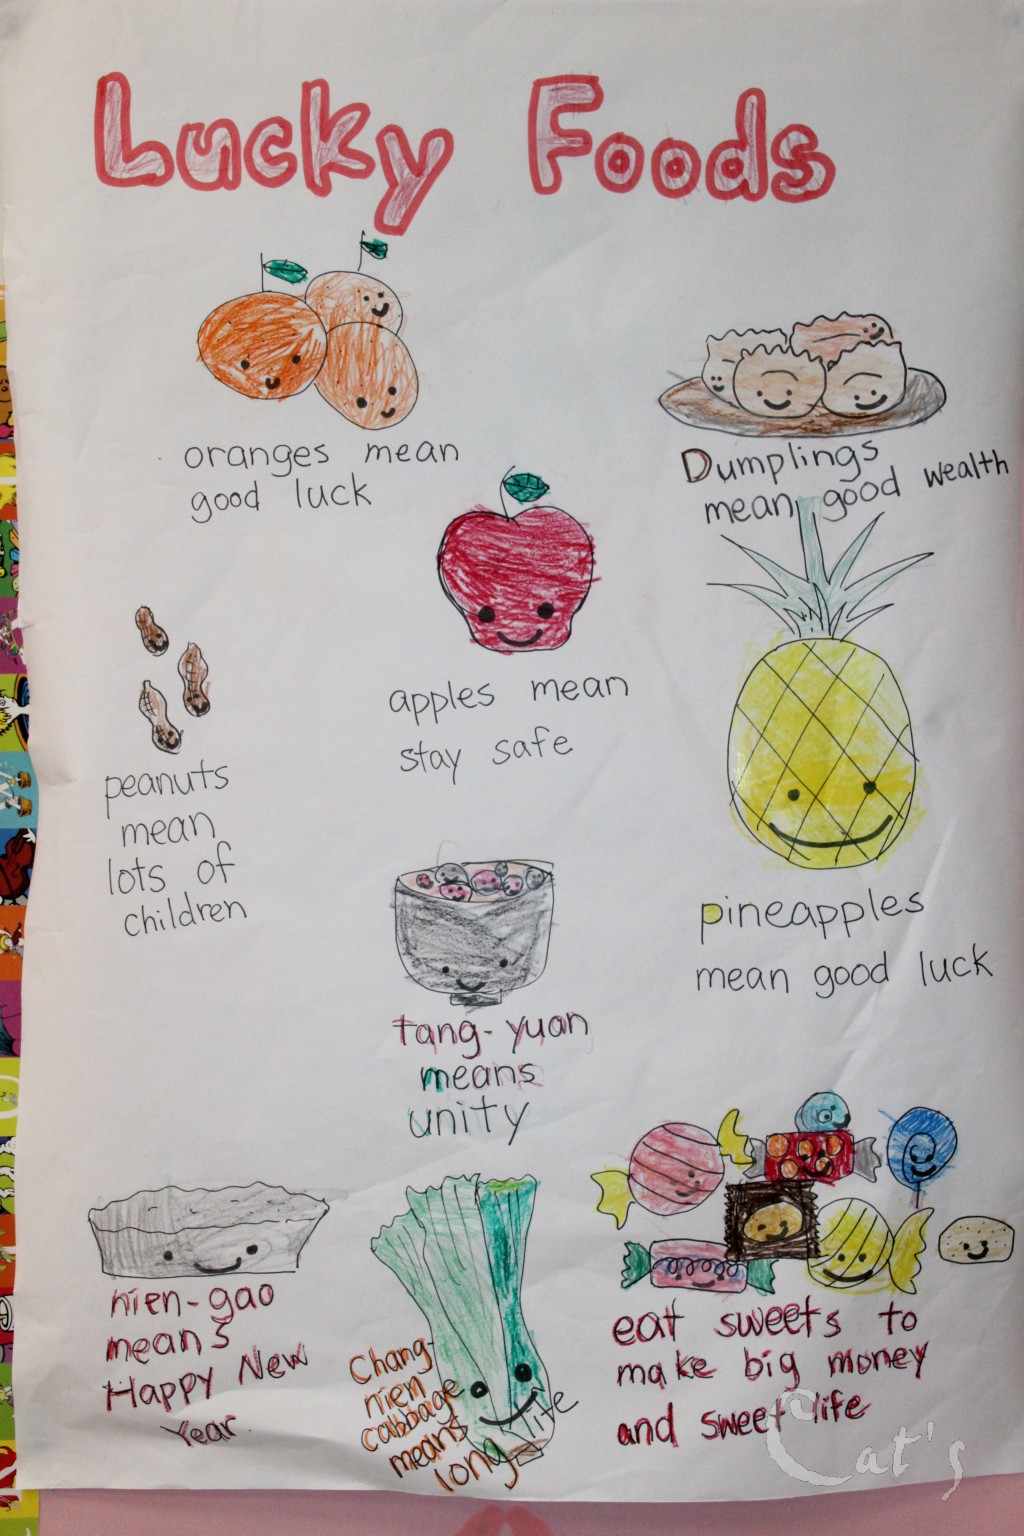 Lucky Foods
oranges mean
good luck
Dumplings
mean good wealth
apples mean
stay safe
peanuts
mean
lots of
children
pineapples
mean good luck
tang-yuan
means
unity
nien-gao
means
Happy New
Year.
Chang-
nien
cabbage
means
long life
eat sweets to
make big money
and sweet life
Cat's